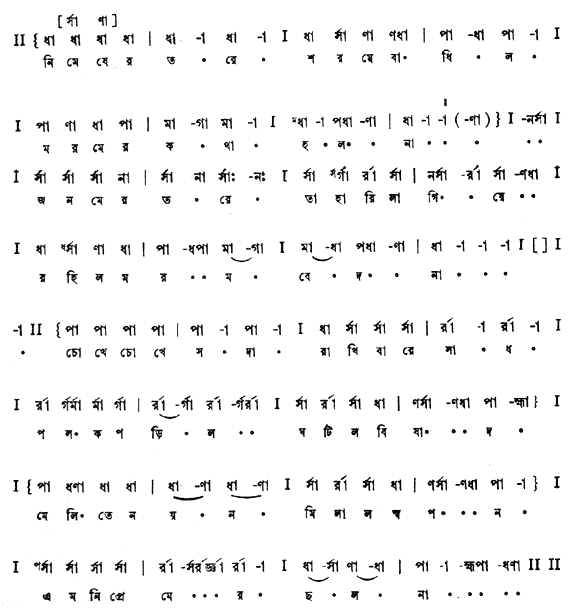 [ র্সা ণা ]
II { ধা ধা ধা ধা | ধা -া ধা -া I ধা র্সা ণা ণধা | পা -ধা পা -া I
নি মে ষে র ত • রে • শ র মে বা• ধি • ল •
I পা ণা ধা পা | মা -গা মা -া I ধা -া পধা -ণা | ধা -া -া (-ণা) } I -নর্সা I
ম র মে র ক • থা • হ • ল• • না • • • ••
I র্সা র্সা র্সা না | র্সা না র্সাঃ -নঃ I র্সা র্গা র্রা র্সা | নর্সা -র্রা র্সা -ণধা I
জ ন মে র ত • রে • তা হা রি লা গি• • য়ে ••
I ধা র্সা ণা ধা | পা -ধপা মা -গা I মা -ধা পধা -ণা | ধা -া -া -া I [ ] I
র হি ল ম র •• ম • বে • দ• • না • • •
-া II { পা পা পা পা | পা -া পা -া I ধা র্সা র্সা র্সা | র্রা -া র্রা -া I
• চো খে চো খে স • দা • রা খি বা রে সা • ধ •
I র্রা র্গর্মা র্মা র্গা | র্রা -র্গা র্রা -র্গর্রা I র্সা র্রা র্সা ধা | ণর্সা -ণধা পা -হ্মা } I
প ল• ক প ড়ি • ল •• ঘ টি ল বি ষা• •• দ •
I { পা ধণা ধা ধা | ধা -ণা ধা -ণা I র্সা র্রা র্সা ধা | ণর্সা -ণধা পা -া } I
মে লি• তে ন য় • ন • মি লা ল স্ব প• •• ন •
I র্সা র্সা র্সা র্সা | র্রা -র্সর্রর্জ্ঞা র্রা -া I ধা -র্সা ণা -ধা | পা -া -হ্মপা -ধণা II II
এ ম নি প্রে মে ••• র • ছ • ল • না • •• ••